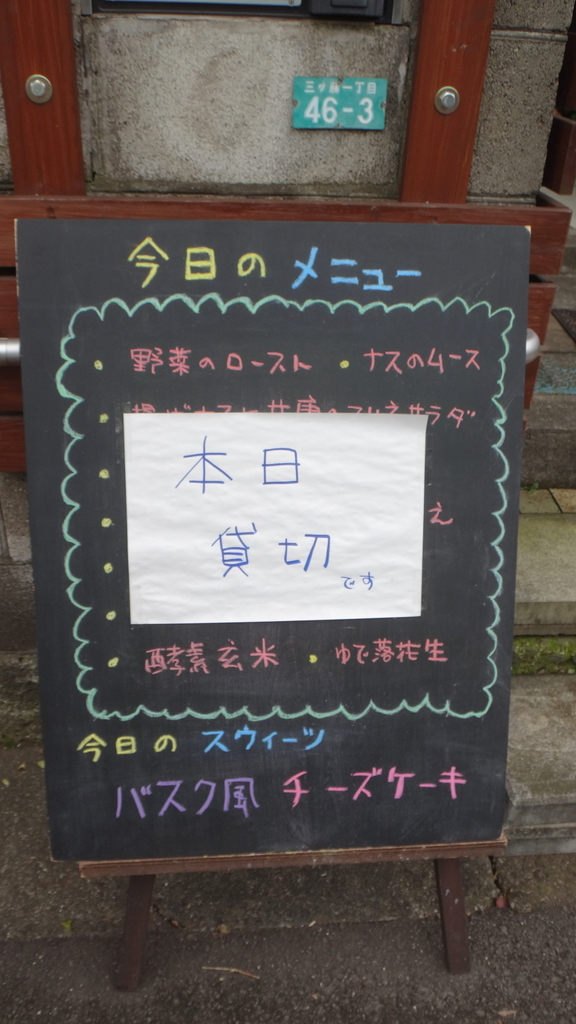 一丁目
46-3
今日の メニュー
・野菜のロースト ・ナスのムース
サラダ
本日
え
貸切
です
・酵素玄米 ・ゆで落花生
今日の スウィーツ
バスク風 チーズケーキ